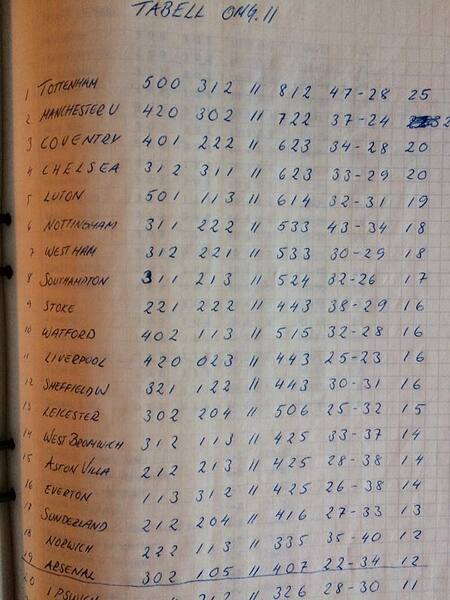 TABELL OMG. 11
1 TOTTENHAM 500 312 11 812 47-28 25
2 MANCHESTER U 420 302 11 722 37-24
3 COVENTRY 401 222 11 623 34-28 20
4 CHELSEA 312 311 11 623 33-29 20
5 LUTON 501 113 11 614 32-31 19
6 NOTTINGHAM 311 222 11 533 43-34 18
7 WEST HAM 312 221 11 533 30-29 18
8 SOUTHAMPTON 311 213 11 524 32-26 17
9 STOKE 221 222 11 443 38-29 16
10 WATFORD 402 113 11 515 32-28 16
11 LIVERPOOL 420 023 11 443 25-23 16
12 SHEFFIELD W 321 122 11 443 30-31 16
13 LEICESTER 302 204 11 506 25-32 15
14 WEST BROMWICH 312 113 11 425 33-37 14
15 ASTON VILLA 212 213 11 425 28-38 14
16 EVERTON 113 312 11 425 26-38 14
17 SUNDERLAND 212 204 11 416 27-33 13
18 NORWICH 222 113 11 335 35-40 12
19 ARSENAL 302 105 11 407 22-34 12
20 IPSWICH 11 326 28-30 11